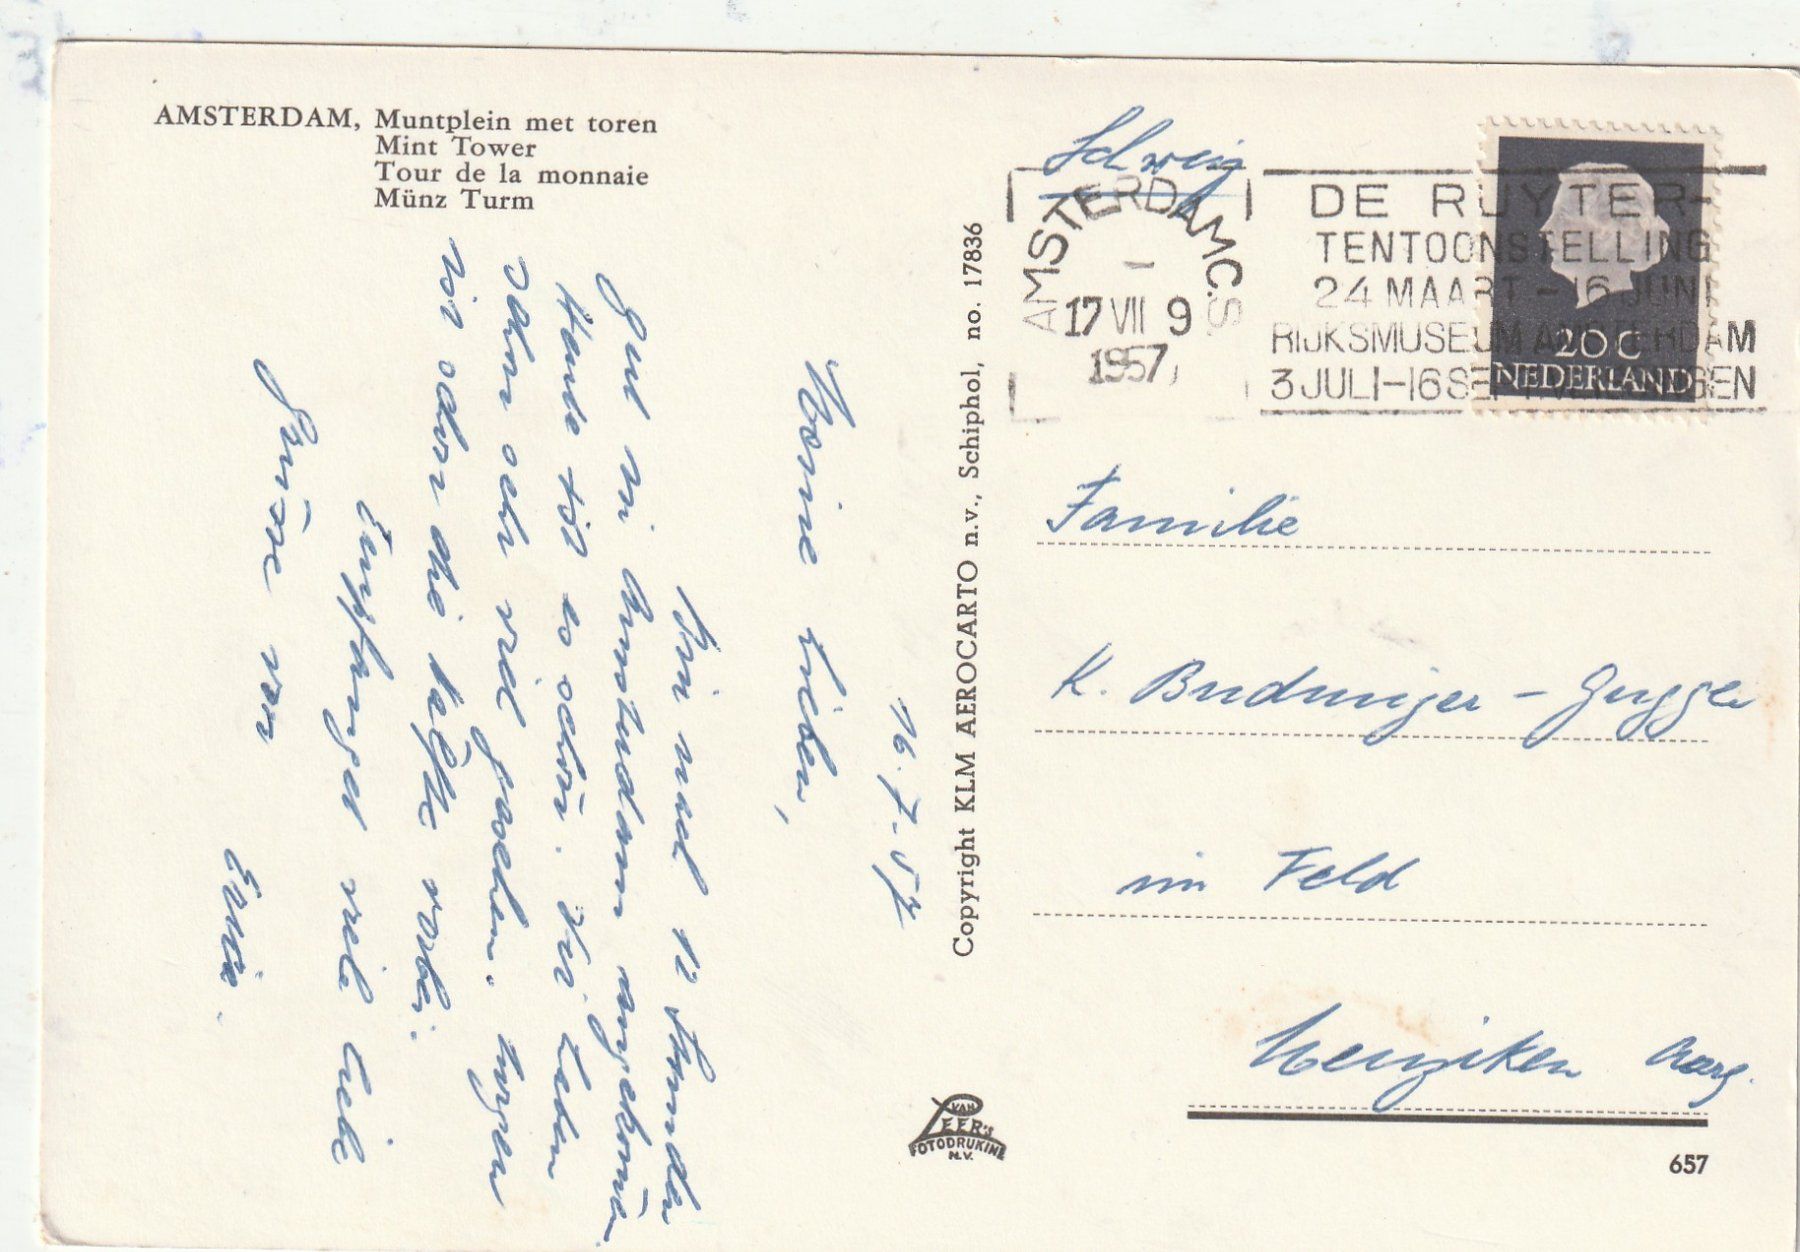 AMSTERDAM, Muntplein met toren
Mint Tower
Tour de la monnaie
Münz Turm
16.7.57
Meine Lieben,
Bin nach 12 Stunden
gut in Amsterdam angekommen
Hause ist es schön. Wir haben
schon sehr viel gesehen. Morgen
ist schon die Hälfte vorbei.
Empfanget viele liebe
Grüsse von
Erna.
Copyright KLM AEROCARTO n.v., Schiphol, no. 17836
VAN LEER's
FOTODRUKIND.
N.V.
Schweiz
AMSTERDAM C.S.
17 VII 9
1957
DE RUYTER-
TENTOONSTELLING
24 MAART - 16 JUNI
RIJKSMUSEUM AMSTERDAM
3 JULI - 16 SEPT.
20 C
NEDERLAND
Familie
K.
im Feld
Menziken Aarg.
657